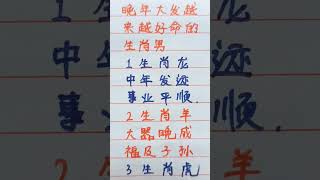 晚年大发越
来越好命的
生肖男
1生肖龙
中年发迹
事业平顺.
2生肖羊
大器晚成
福及子孙
3生肖虎